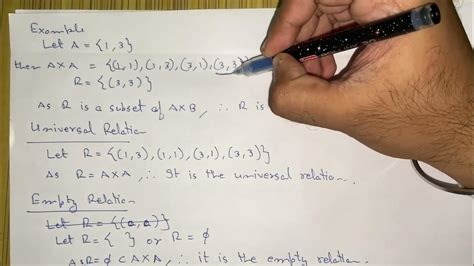 Example
Let A = {1,3}
then A×A = {(1,1),(1,3),(3,1),(3,3)}
R = {(3,3)}
As R is a subset of A×B, ∴ R is
Universal Relation
Let R = {(1,3),(1,1),(3,1),(3,3)}
As R = A×A, ∴ It is the universal relation.
Empty Relation
Let R = {(a,a)}
Let R = { } or R = ϕ
As R = ϕ ⊂ A×A, ∴ it is the empty relation.